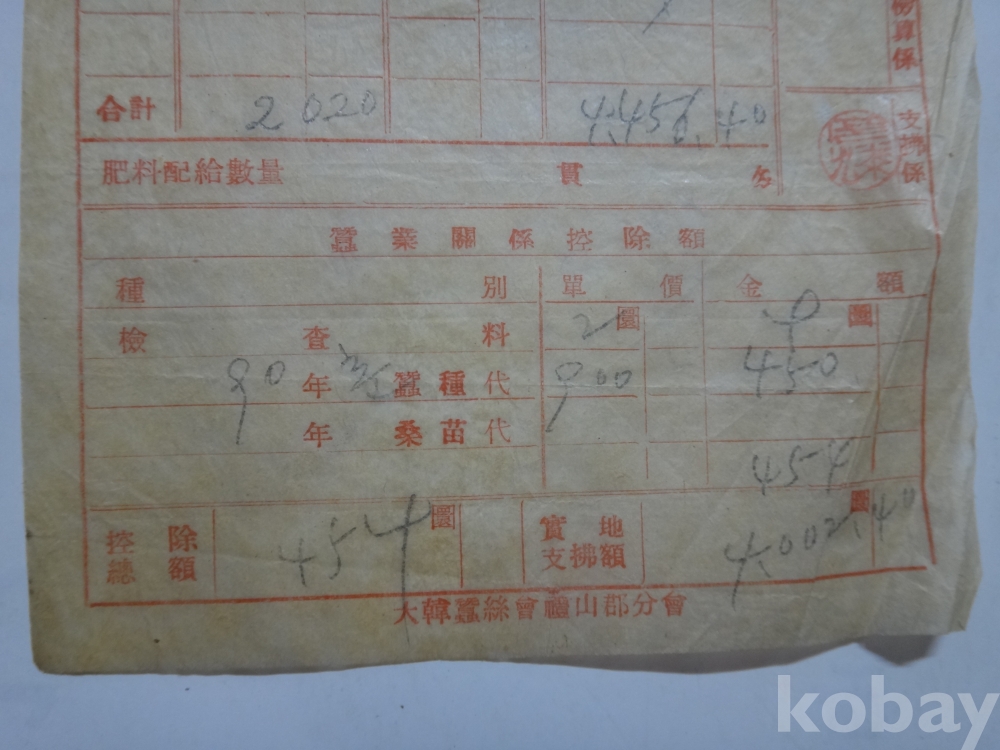 算係
合計 2020 4,456.40
支拂係
肥料配給數量 貫 匁
蠶業關係控除額
種別 單價 金額
檢査料 2 圓 4 圓
90年 蠶種代 900 450
年 桑苗代
454
控除總額 454 圓 實地支拂額 4,002.40 圓
大韓蠶絲會禮山郡分會
kobay